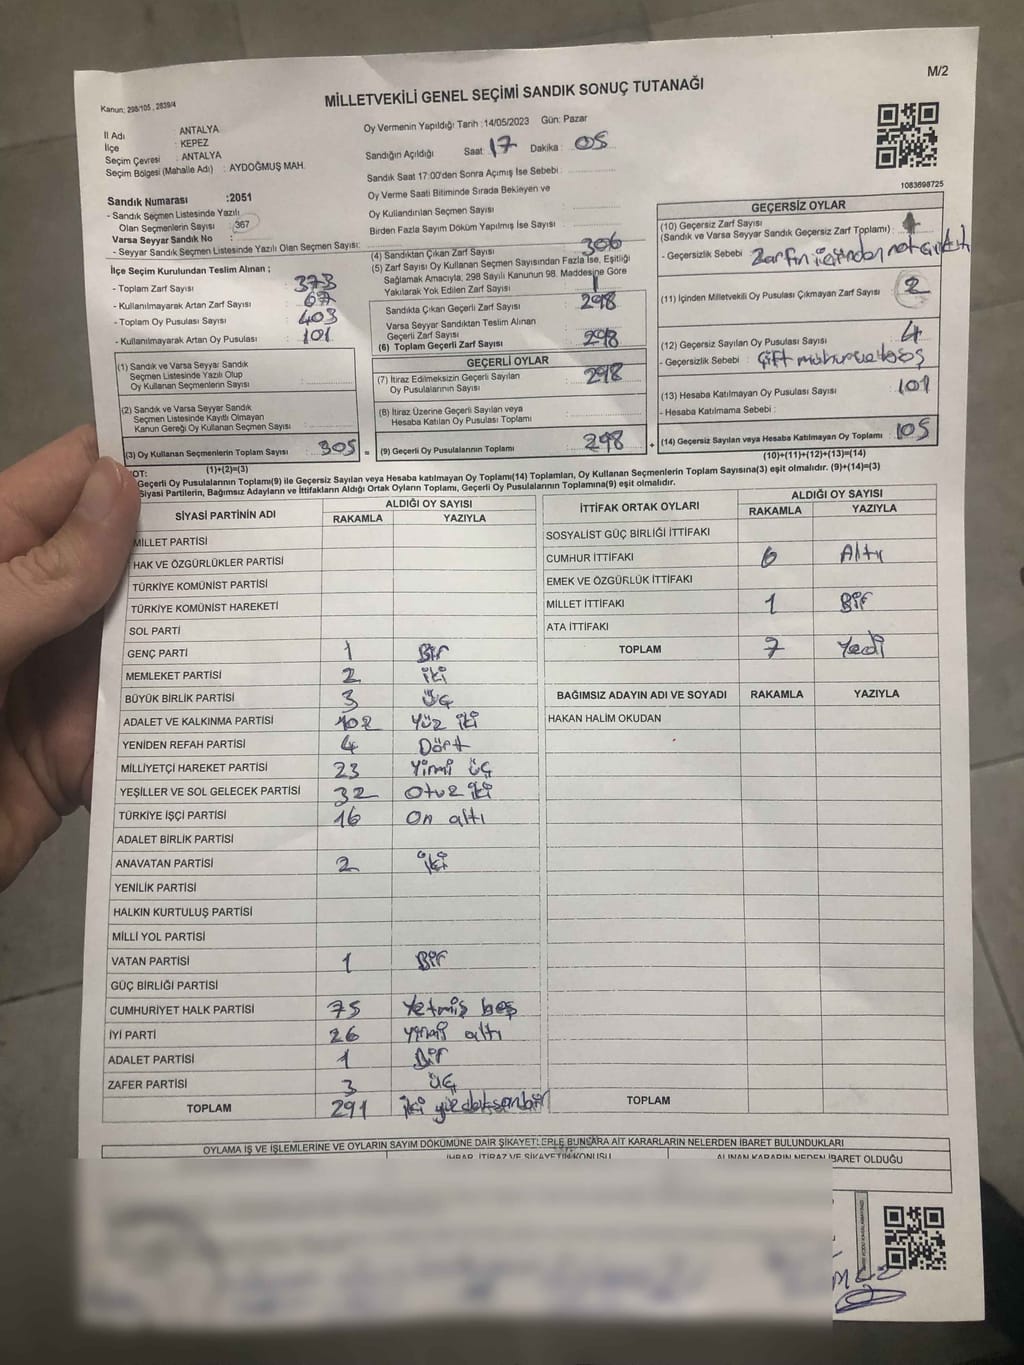 M/2
Kanun; 298/105 , 2839/4
MİLLETVEKİLİ GENEL SEÇİMİ SANDIK SONUÇ TUTANAĞI
İl Adı : ANTALYA
İlçe : KEPEZ
Seçim Çevresi : ANTALYA
Seçim Bölgesi (Mahalle Adı) : AYDOĞMUŞ MAH.
Sandık Numarası :2051
- Sandık Seçmen Listesinde Yazılı
Olan Seçmenlerin Sayısı : 367
Varsa Seyyar Sandık No :
- Seyyar Sandık Seçmen Listesinde Yazılı Olan Seçmen Sayısı:
Oy Vermenin Yapıldığı Tarih :14/05/2023 Gün: Pazar
Sandığın Açıldığı Saat 17 Dakika : 05
Sandık Saat 17:00'den Sonra Açımış İse Sebebi :
Oy Verme Saati Bitiminde Sırada Bekleyen ve
Oy Kullandırılan Seçmen Sayısı :
Birden Fazla Sayım Döküm Yapılmış İse Sayısı :
1083698725
İlçe Seçim Kurulundan Teslim Alınan ;
- Toplam Zarf Sayısı : 373
- Kullanılmayarak Artan Zarf Sayısı : 67
- Toplam Oy Pusulası Sayısı : 403
- Kullanılmayarak Artan Oy Pusulası : 101
(1) Sandık ve Varsa Seyyar Sandık
Seçmen Listesinde Yazılı Olup
Oy Kullanan Seçmenlerin Sayısı :
(2) Sandık ve Varsa Seyyar Sandık
Seçmen Listesinde Kayıtlı Olmayan
Kanun Gereği Oy Kullanan Seçmen Sayısı :
(3) Oy Kullanan Seçmenlerin Toplam Sayısı : 305
(1)+(2)=(3)
(4) Sandıktan Çıkan Zarf Sayısı : 306
(5) Zarf Sayısı Oy Kullanan Seçmen Sayısından Fazla İse, Eşitliği
Sağlamak Amacıyla, 298 Sayılı Kanunun 98. Maddesine Göre
Yakılarak Yok Edilen Zarf Sayısı : 1
Sandıkta Çıkan Geçerli Zarf Sayısı : 298
Varsa Seyyar Sandıktan Teslim Alınan
Geçerli Zarf Sayısı :
(6) Toplam Geçerli Zarf Sayısı : 298
GEÇERLİ OYLAR
(7) İtiraz Edilmeksizin Geçerli Sayılan
Oy Pusulalarının Sayısı : 298
(8) İtiraz Üzerine Geçerli Sayılan veya
Hesaba Katılan Oy Pusulası Toplamı :
= (9) Geçerli Oy Pusulalarının Toplamı : 298 +
GEÇERSİZ OYLAR
(10) Geçersiz Zarf Sayısı
(Sandık ve Varsa Seyyar Sandık Geçersiz Zarf Toplamı) : 1
- Geçersizlik Sebebi : Zarfın içinden not çıktı
(11) İçinden Milletvekili Oy Pusulası Çıkmayan Zarf Sayısı : 2
(12) Geçersiz Sayılan Oy Pusulası Sayısı : 4
- Geçersizlik Sebebi :
(13) Hesaba Katılmayan Oy Pusulası Sayısı : 101
- Hesaba Katılmama Sebebi :
(14) Geçersiz Sayılan veya Hesaba Katılmayan Oy Toplamı : 105
(10)+(11)+(12)+(13)=(14)
Geçerli Oy Pusulalarının Toplamı(9) ile Geçersiz Sayılan veya Hesaba katılmayan Oy Toplamı(14) Toplamları, Oy Kullanan Seçmenlerin Toplam Sayısına(3) eşit olmalıdır. (9)+(14)=(3)
Siyasi Partilerin, Bağımsız Adayların ve İttifakların Aldığı Ortak Oyların Toplamı, Geçerli Oy Pusulalarının Toplamına(9) eşit olmalıdır.
SİYASİ PARTİNİN ADI ALDIĞI OY SAYISI
RAKAMLA YAZIYLA
MİLLET PARTİSİ
HAK VE ÖZGÜRLÜKLER PARTİSİ
TÜRKİYE KOMÜNİST PARTİSİ
TÜRKİYE KOMÜNİST HAREKETİ
SOL PARTİ
GENÇ PARTİ 1 Bir
MEMLEKET PARTİSİ 2 iki
BÜYÜK BİRLİK PARTİSİ 3 üç
ADALET VE KALKINMA PARTİSİ 102 Yüz iki
YENİDEN REFAH PARTİSİ 4 Dört
MİLLİYETÇİ HAREKET PARTİSİ 23 Yirmi üç
YEŞİLLER VE SOL GELECEK PARTİSİ 32 Otuz iki
TÜRKİYE İŞÇİ PARTİSİ 16 On altı
ADALET BİRLİK PARTİSİ
ANAVATAN PARTİSİ 2 iki
YENİLİK PARTİSİ
HALKIN KURTULUŞ PARTİSİ
MİLLİ YOL PARTİSİ
VATAN PARTİSİ 1 Bir
GÜÇ BİRLİĞİ PARTİSİ
CUMHURİYET HALK PARTİSİ 75 Yetmiş beş
İYİ PARTİ 26 Yirmi altı
ADALET PARTİSİ 1 Bir
ZAFER PARTİSİ 3 üç
TOPLAM 291 iki yüzdoksanbir
İTTİFAK ORTAK OYLARI ALDIĞI OY SAYISI
RAKAMLA YAZIYLA
SOSYALİST GÜÇ BİRLİĞİ İTTİFAKI
CUMHUR İTTİFAKI 6 Altı
EMEK VE ÖZGÜRLÜK İTTİFAKI
MİLLET İTTİFAKI 1 Bir
ATA İTTİFAKI
TOPLAM 7 Yedi
BAĞIMSIZ ADAYIN ADI VE SOYADI RAKAMLA YAZIYLA
HAKAN HALİM OKUDAN
TOPLAM
OYLAMA İŞ VE İŞLEMLERİNE VE OYLARIN SAYIM DÖKÜMÜNE DAİR ŞİKAYETLERLE BUNLARA AİT KARARLARIN NELERDEN İBARET BULUNDUKLARI
İHBAR, İTİRAZ VE ŞİKAYETİN KONUSU ALINAN KARARIN NEDEN İBARET OLDUĞU